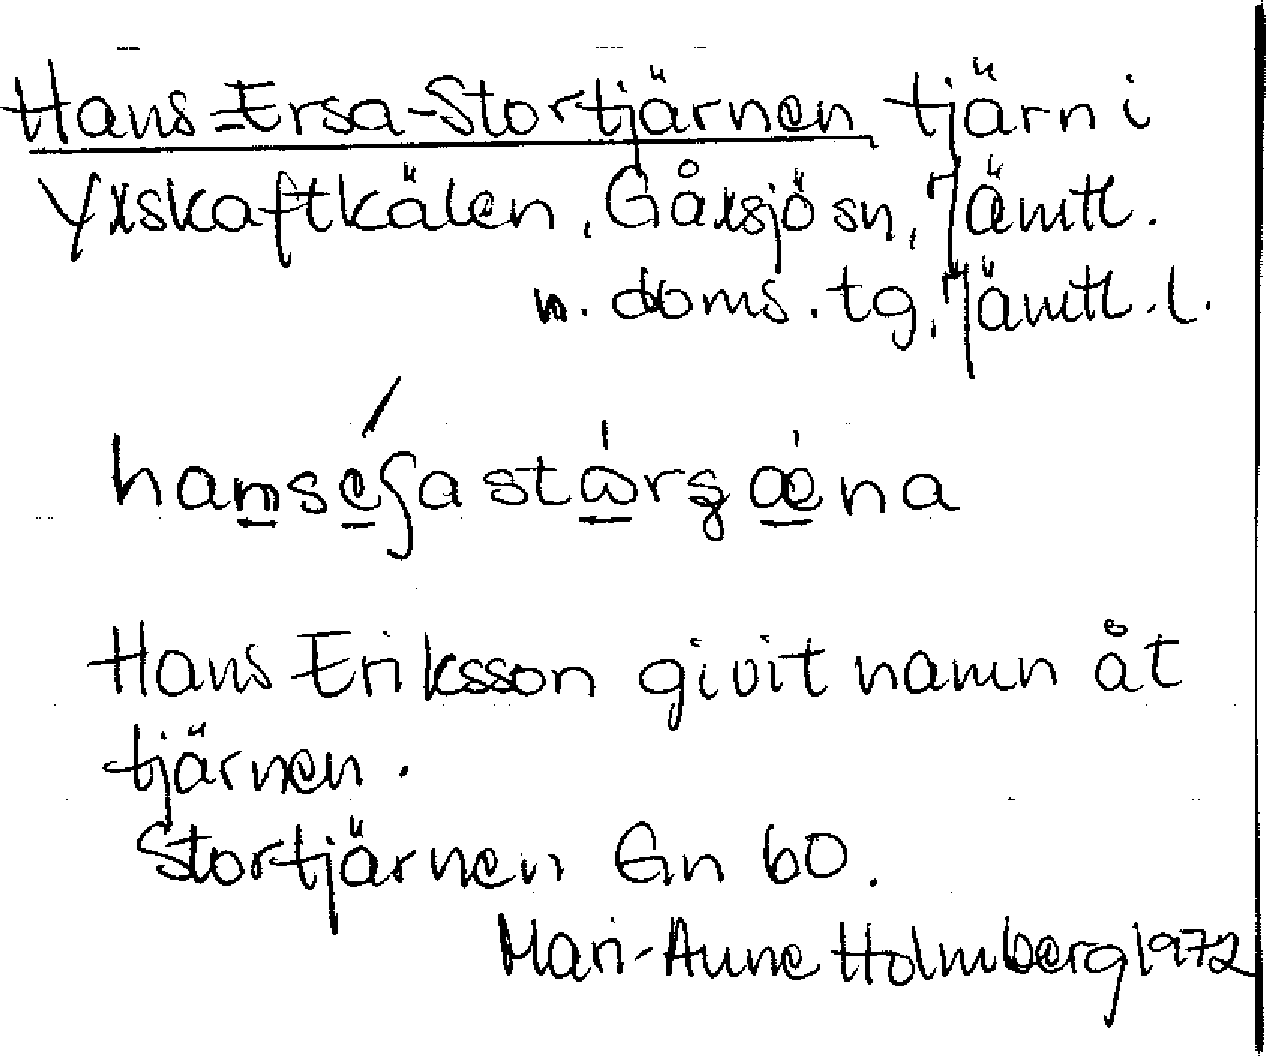 Hans-Ersa-Stortjärnen tjärn i
Yxskaftkälen, Gåxsjö sn, Jämtl.
n. doms. tg, Jämtl. l.
Hans Eriksson givit namn åt
tjärnen.
Stortjärnen Gn 60.
Mari-Anne Holmberg 1972